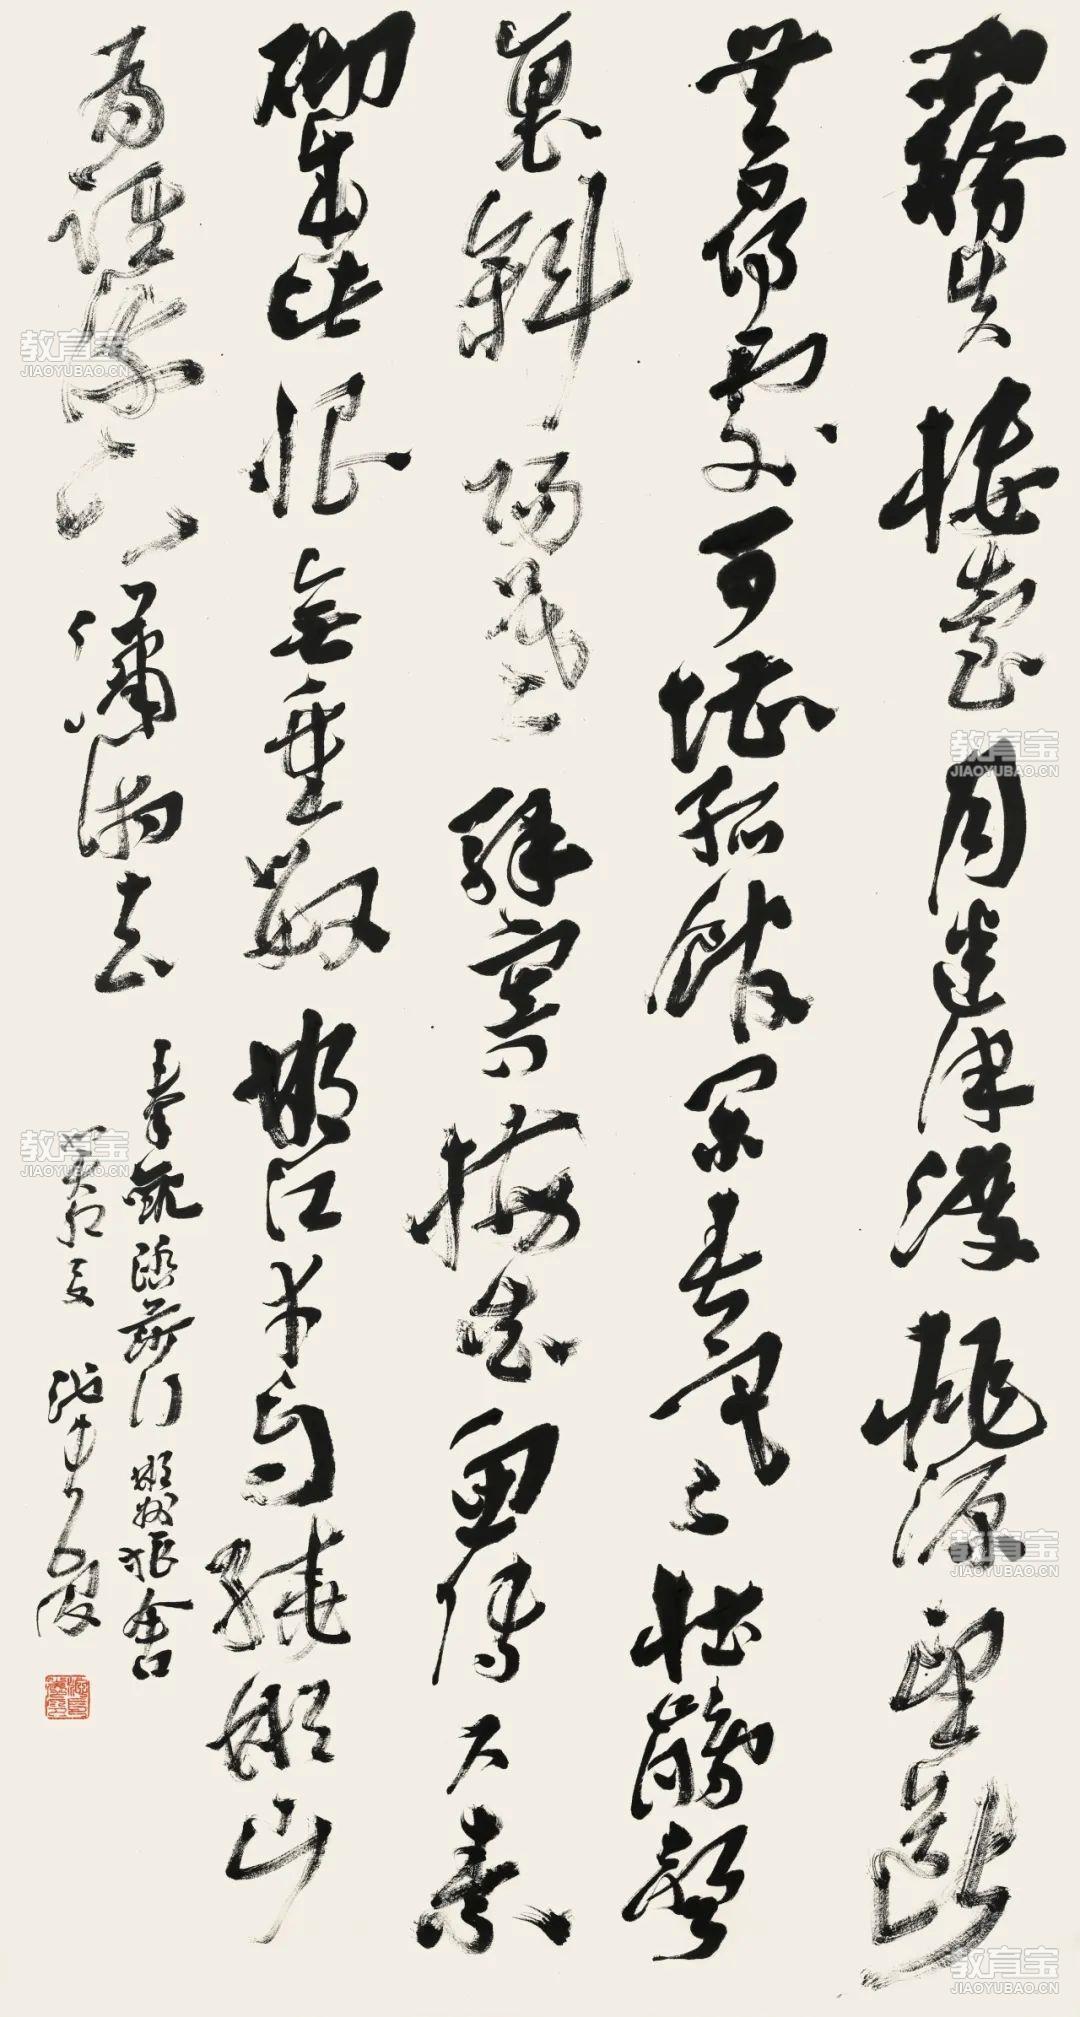 霧失樓臺月迷津渡桃源望斷
無尋處可堪孤館閉春寒杜鵑聲
裏斜陽暮驛寄梅花魚傳尺素
砌成此恨無重數郴江幸自繞郴山
為誰流下瀟湘去
秦觀踏莎行郴州旅舍
癸卯夏
教育宝
JIAOYUBAO.CN
教育宝
JIAOYUBAO.CN
教育宝
JIAOYUBAO.CN
教育宝
JIAOYUBAO.CN
教育宝
JIAOYUBAO.CN